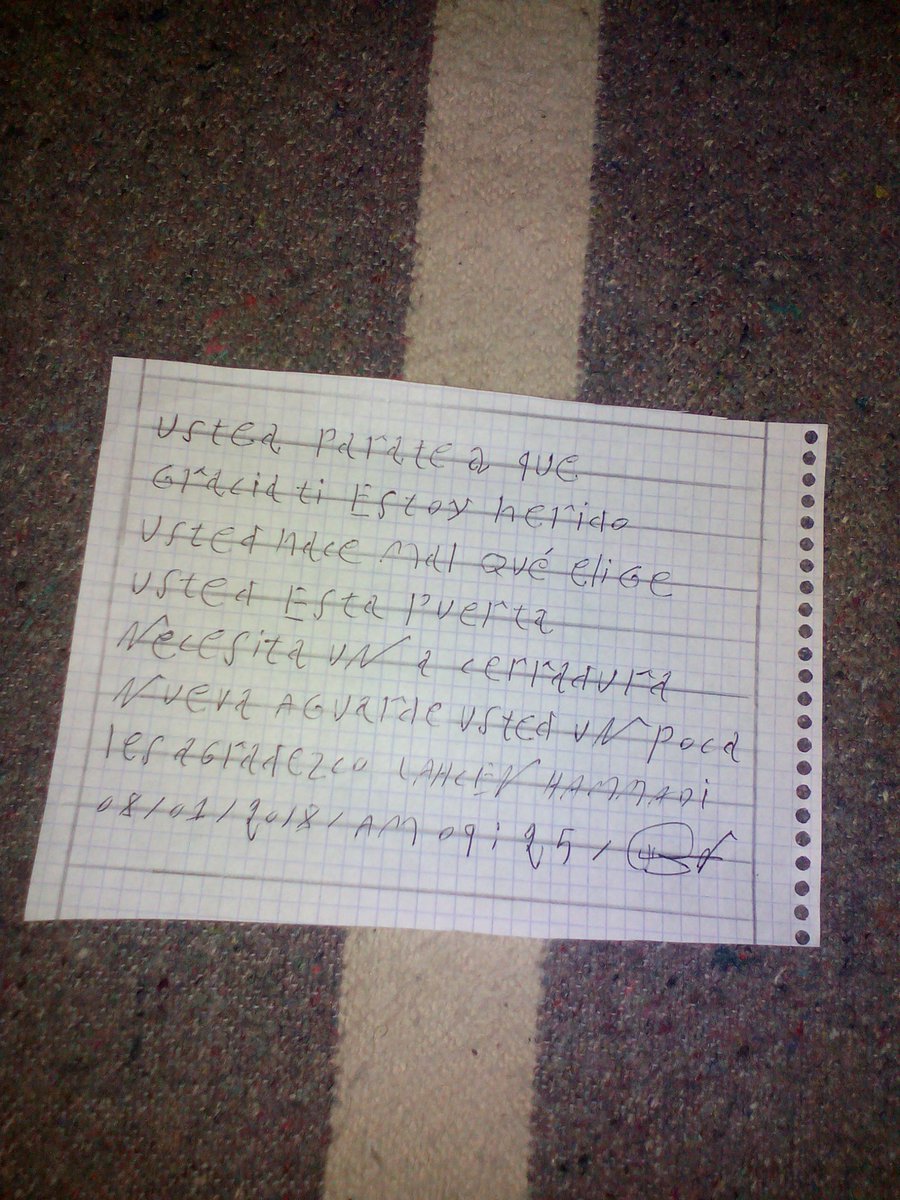 usted parate a que
Gracia ti Estoy herido
usted hace mal qué eliGe
usted Esta puerta
Necesita uN a cerradura
Nueva AGuarde usted uN poca
les aGradezco LAHcEN HAMMADi
08/01/2018/AM 09:25/